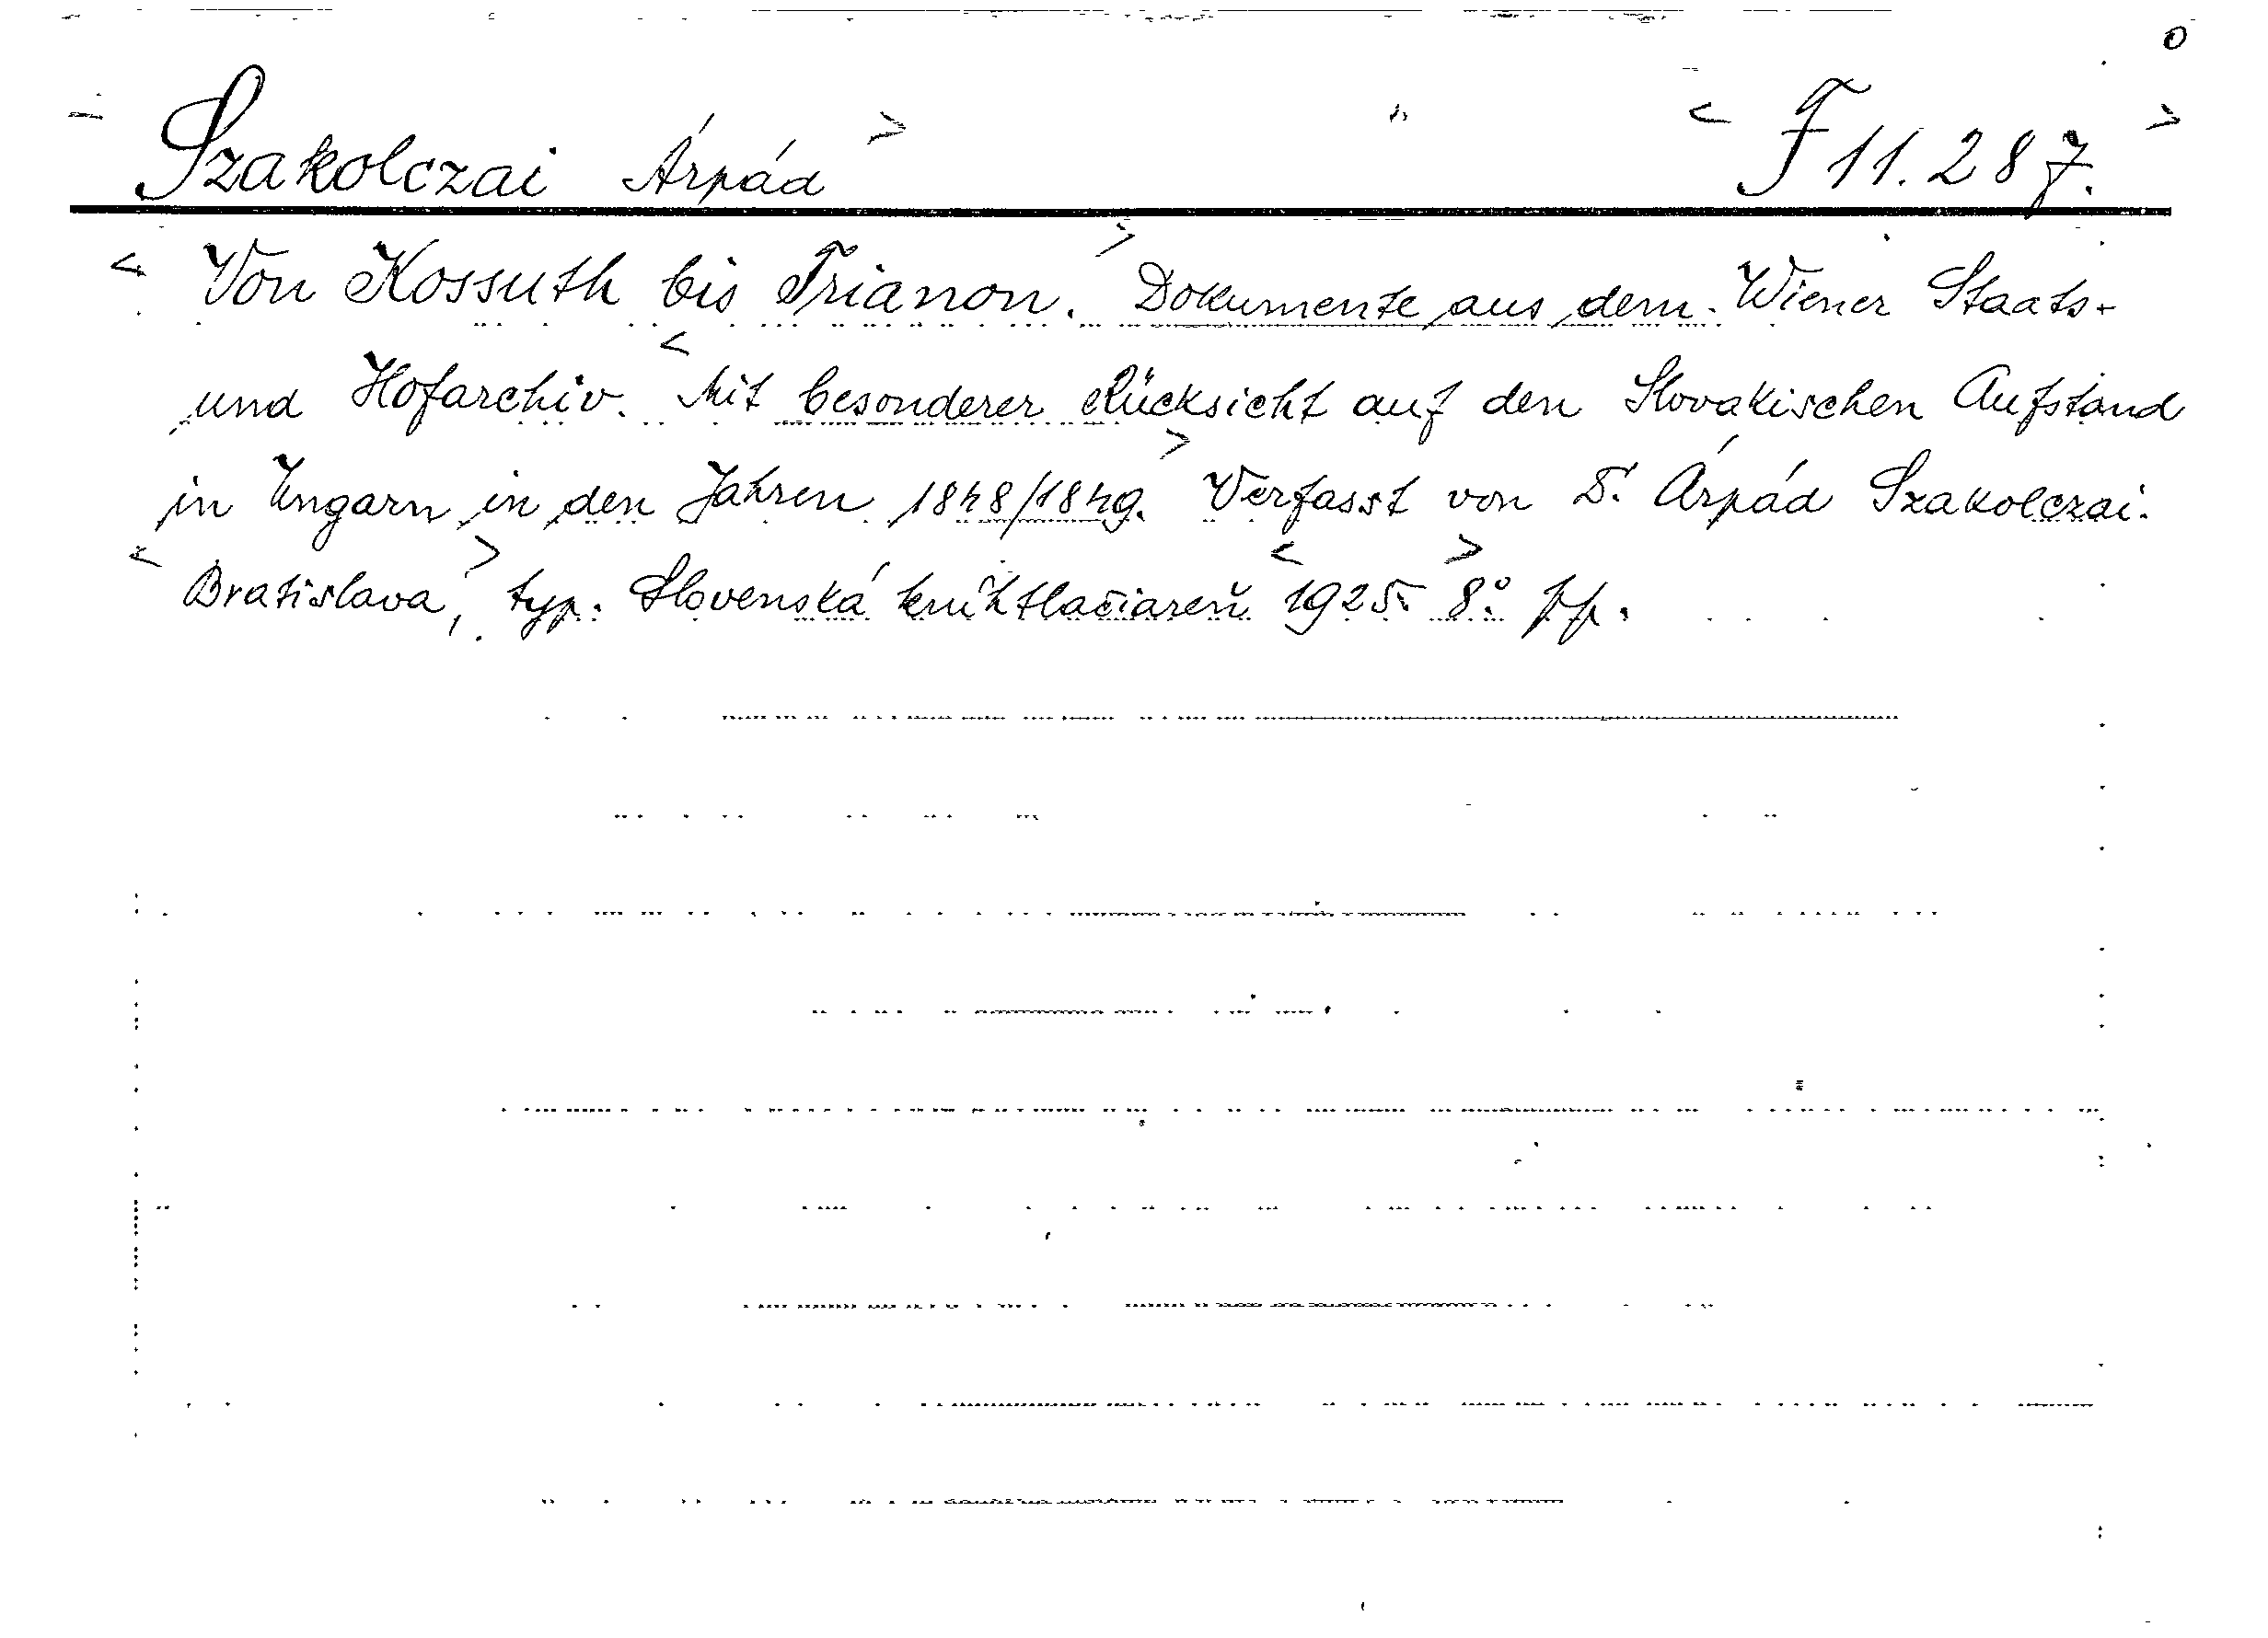 Szakolczai Árpád > < F 11.287. >
< Von Kossuth bis Trianon. > Dokumente aus dem Wiener Staats-
und Hofarchiv. < Mit besonderer Rücksicht auf den Slovakischen Aufstand
in Ungarn in den Jahren 1848/1849. > Verfasst von Dr. Árpád Szakolczai.
< Bratislava, > typ. Slovenská kníhtlačiareň < 1925. > 8°.